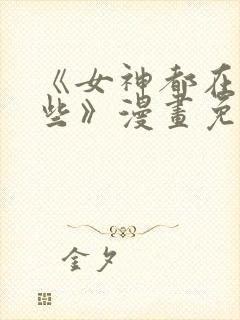 《女神都在
些》漫畫免
金夕